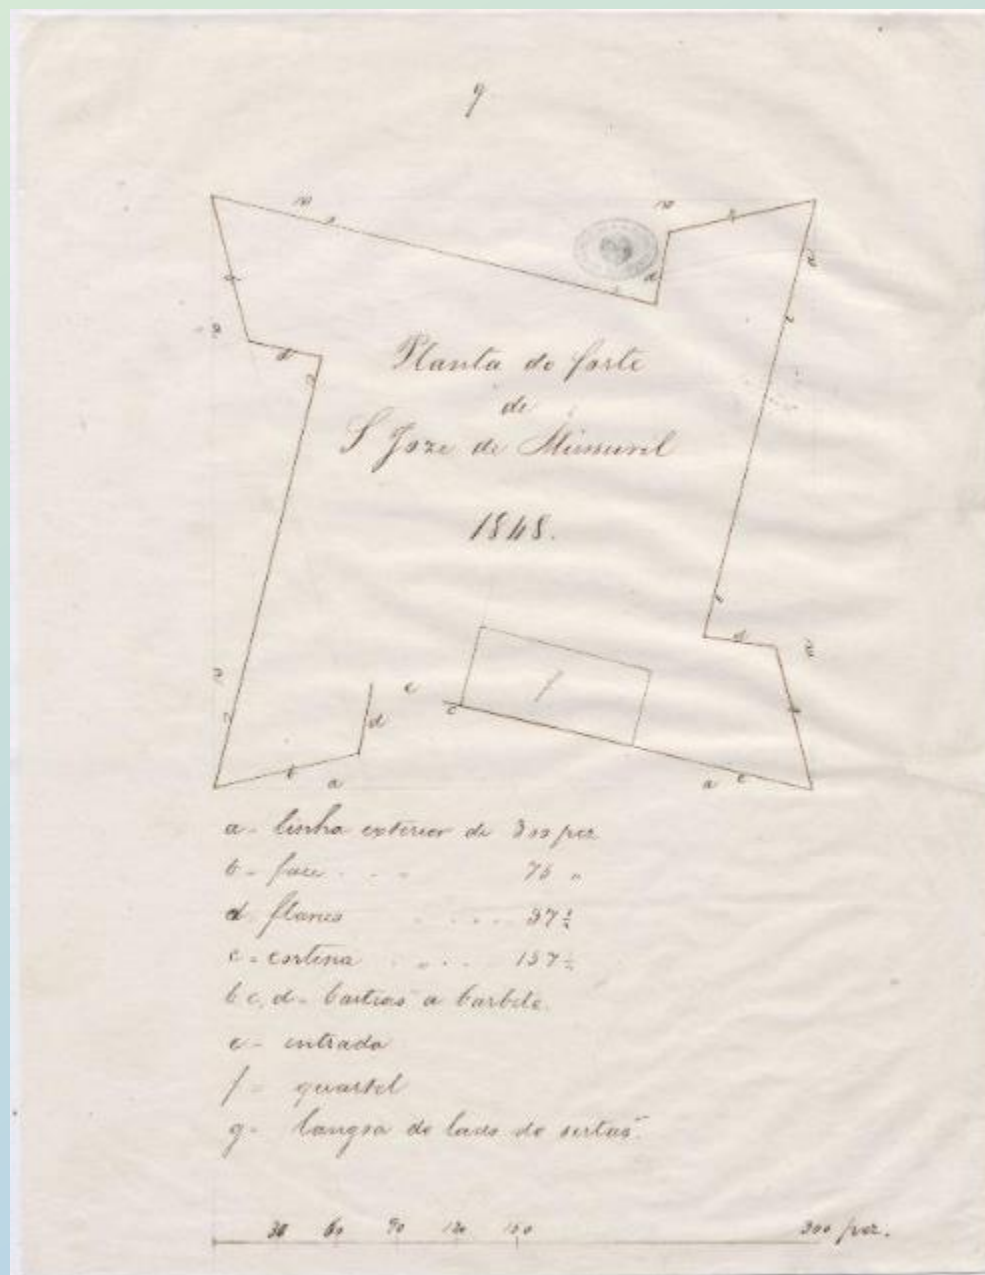 g
Planta do forte
de
S Joze de Mussuril
1848.
a - linha exterior de 300 pez
b - face 75 "
d flanco 37½
c - cortina " 137½
b c, d - a barbete.
e - entrada
f - quartel
g - do lado do sertaõ
30 60 90 120 150 300 pez.